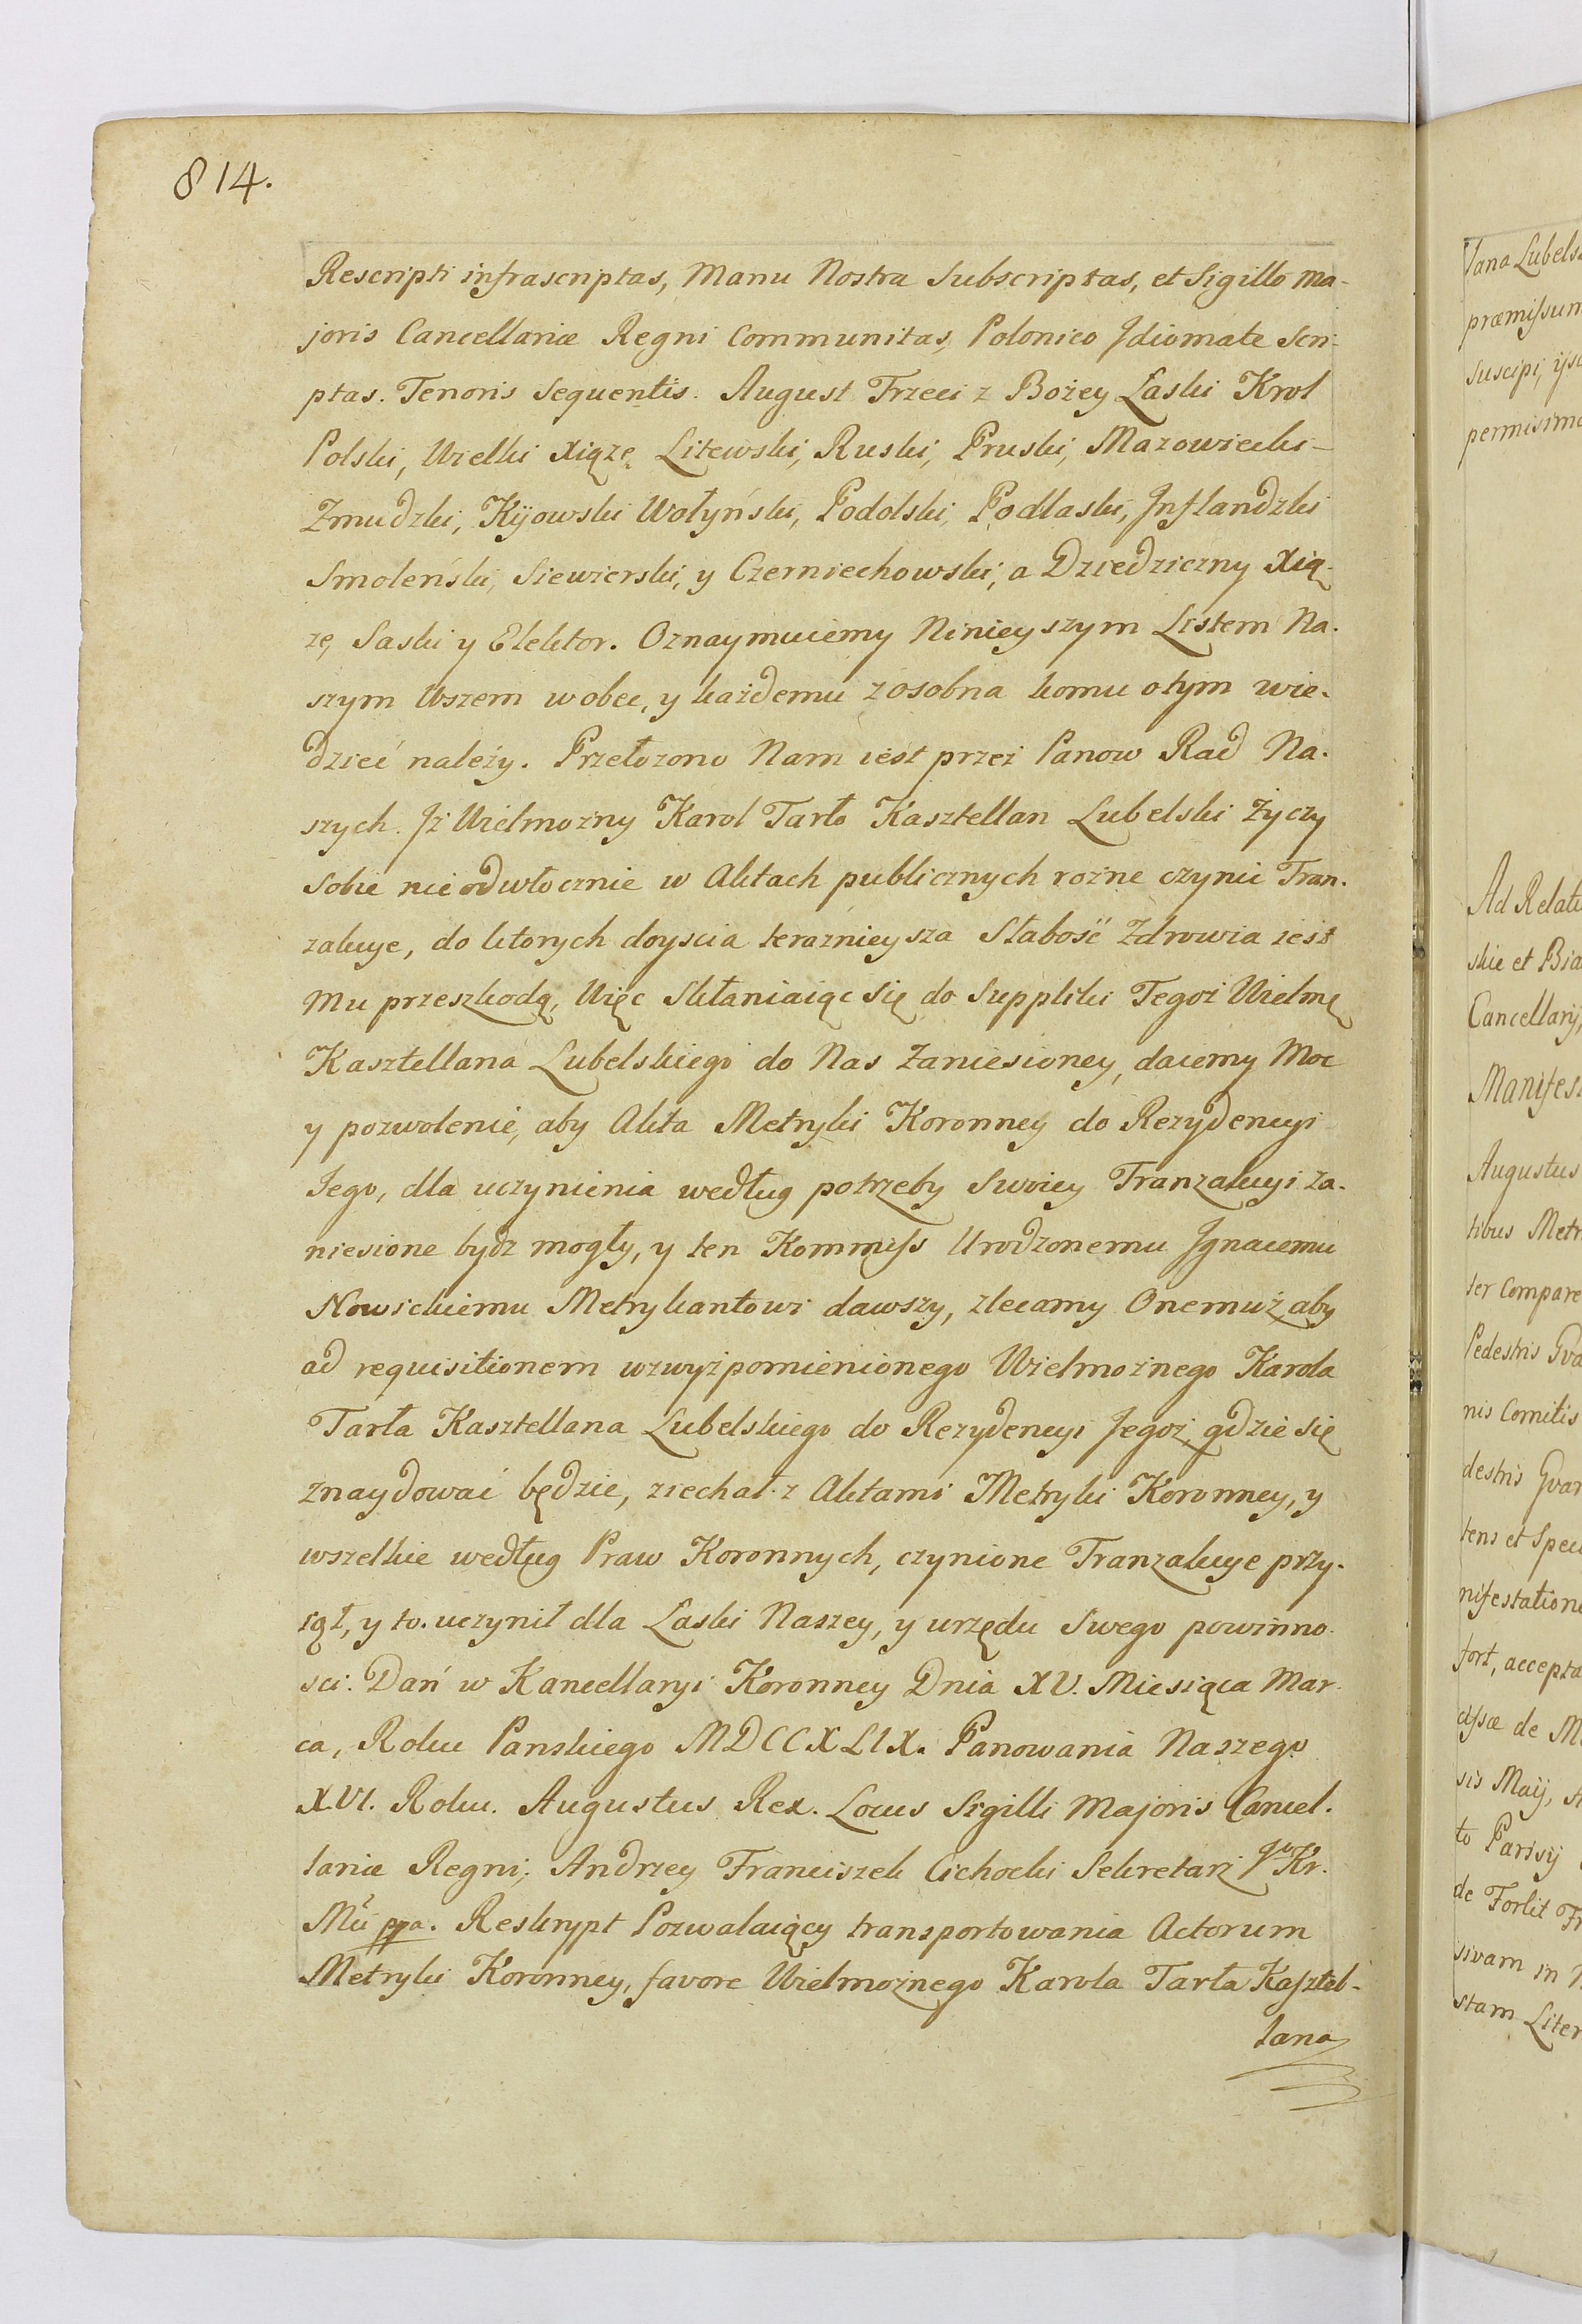 814.
Rescripti infrascriptas, Manu Nostra Subscriptas, et Sigillo Ma-
joris Cancellariæ Regni Communitas, Polonico Jdiomate Scri-
ptas. Tenoris Sequentis. August Trzeci z Bożey Łaski Krol
Polski, Wielki Xiąze Litewski, Ruski, Pruski, Mazowiecki-
Zmudzki, Kijowski Wołyński, Podolski, Podlaski, Jnflandzki
Smoleński, Siewierski, y Czerniechowski, a Dziedziczny Xią-
zę, Saski y Elektor. Oznaymuiemy Ninieyszym Listem Na-
szym Wszem wobec, y każdemu zosobna komu otym wie-
dzieć należy. Przełozono Nam iest przez Panow Rad Na-
szych. Jż Wielmożny Karol Tarło Kasztellan Lubelski życzy
Sobie nieodwłocznie w Aktach publicznych rożne czynic Tran-
zakcye, do ktorych doyscia teraznieysza Słabość Zdrowia iest
Mu przeszkodą, Więc Skłaniaiąc Się do Suppliki Tegoż Wielmę
Kasztellana Lubelskiego do Nas Zaniesioney, daiemy Moc
y pozwolenie, aby Akta Metryki Koronney do Rezydencyi
Jego, dla uczynienia według potrzeby Swoiey Tranzakcyi za-
niesione bydz mogły, y ten Kommiss Urodzonemu Jgnacemu
Nowickiemu Metrykantowi dawszy, zlecamy Onemuż, aby
ad requisitionem wzwyżpomienionego Wielmożnego Karola
Tarła Kasztellana Lubelskiego do Rezydencyi Jegoż, gdzie się
znaydować będzie, ziechał z Aktami Metryki Koronney, y
wszelkie według Praw Koronnych, czynione Tranzakcye przy-
iął, y to uczynił dla Łaski Naszey, y urzędu Swego powinno-
sci. Dań w Kancellaryi Koronney Dnia XV. Miesiąca Mar-
ca, Roku Panskiego MDCCXLIX. Panowania Naszego
XVI. Roku. Augustus Rex. Locus Sigilli Majoris Cancel-
lariæ Regni; Andrzey Franciszek Cichocki Sekretarz Jo Kr.
Mci ppa. Reskrypt Pozwalaiący transportowania Actorum
Metryki Koronney, favore Wielmożnego Karola Tarła Kasztel-
lana
Jana Lubels
præmissum
Suscipi,
permisimu
Ad Relati
skie et Bia
Cancellarij
Manifes
Augustus
tibus Metr
ter Compare
Pedestris Gva
nis Comitis
destris Gvar
tens et Spec
nifestatione
fort, accepta
cissæ de M
sis Maij, A
to Parisij
de Forlit Fr
sivam in
stam Liter